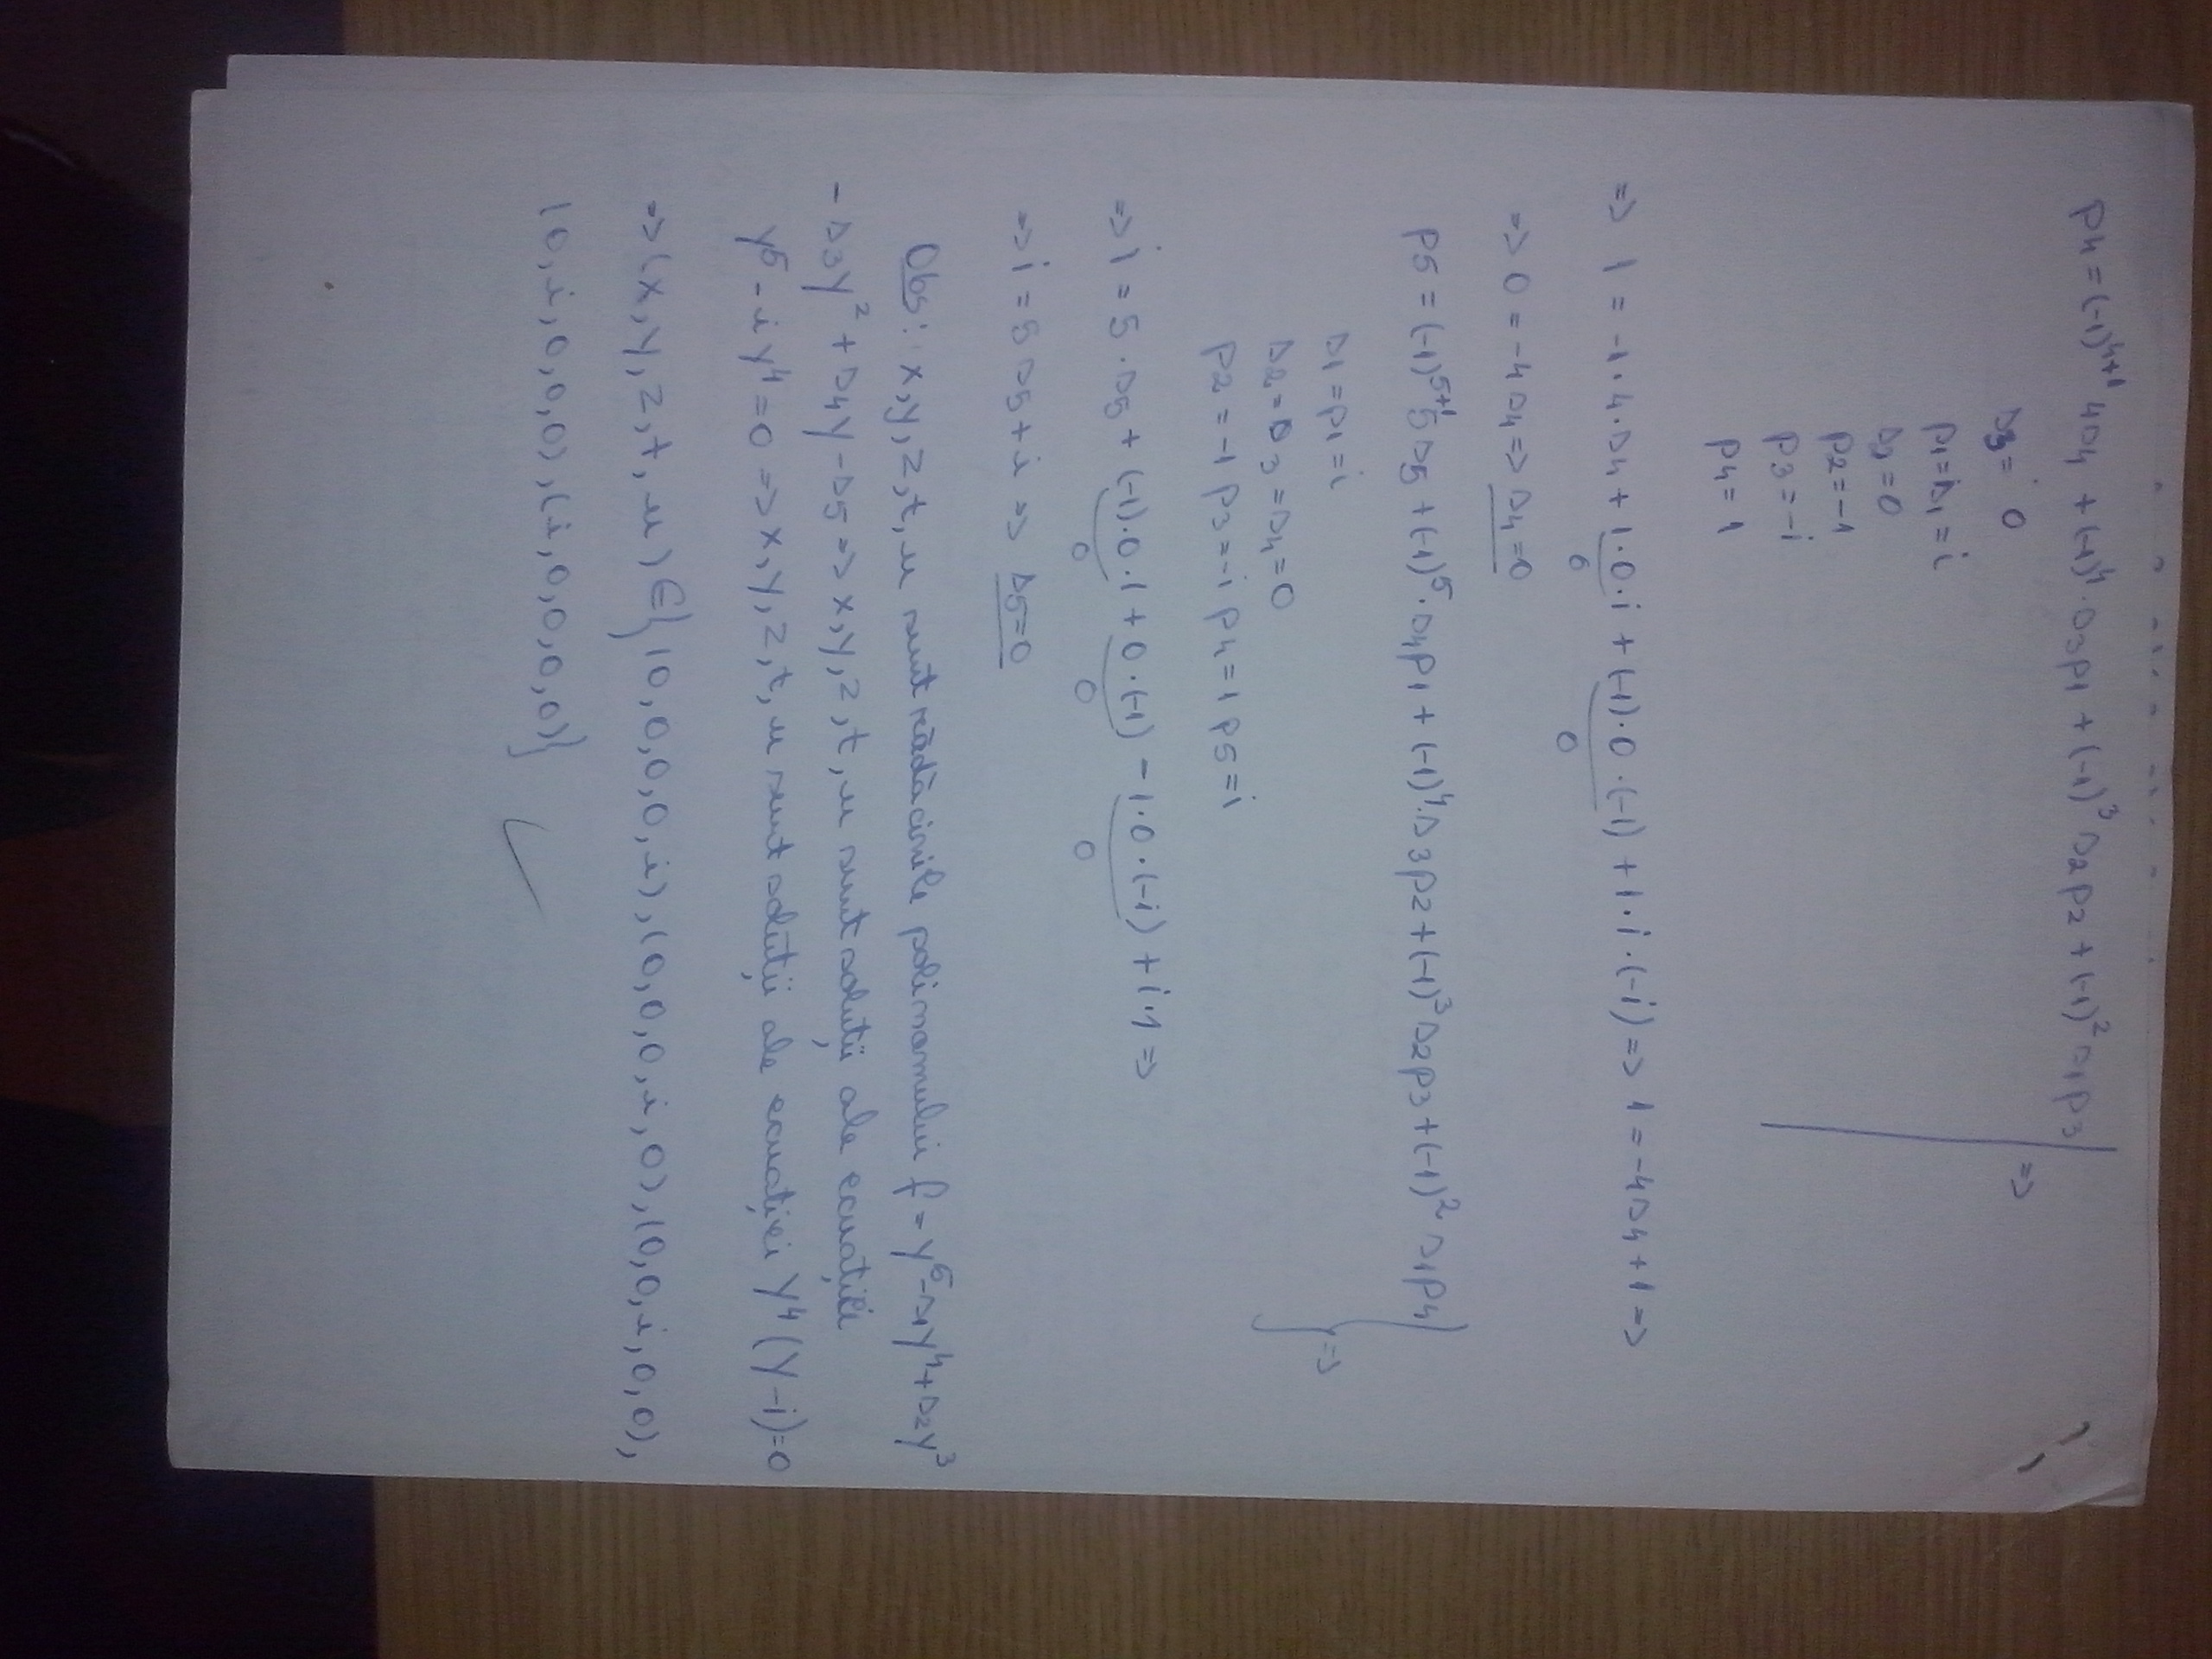 p4 = (-1)^{4+1} 4s4 + (-1)^4 · s3p1 + (-1)^3 s2p2 + (-1)^2 s1p3
s3 = 0
p1 = s1 = i
s2 = 0
p2 = -1
p3 = -i
p4 = 1
=>
=> 1 = -1 · 4 · s4 + 1·0·i + (-1)·0·(-1) + 1·i·(-i) => 1 = -4s4 + 1 =>
0 0
=> 0 = -4s4 => s4=0
p5 = (-1)^{5+1} 5s5 + (-1)^5 · s4p1 + (-1)^4 · s3p2 + (-1)^3 s2p3 + (-1)^2 s1p4
s1 = p1 = i
s2 = s3 = s4 = 0
p2 = -1 p3 = -i p4 = 1 p5 = i
=>
=> i = 5 · s5 + (-1)·0·1 + 0·(-1) - 1·0·(-i) + i·1 =>
0 0 0
=> i = 5s5 + i => s5=0
Obs: x,y,z,t,u sunt rădăcinile polinomului f = y^5 - s1y^4 + s2y^3
- s3y^2 + s4y - s5 => x,y,z,t,u sunt soluții ale ecuației
y^5 - iy^4 = 0 => x,y,z,t,u sunt soluții ale ecuației y^4(y-i)=0
=> (x,y,z,t,u) ∈ {(0,0,0,0,i),(0,0,0,i,0),(0,0,i,0,0),
(0,i,0,0,0),(i,0,0,0,0)}